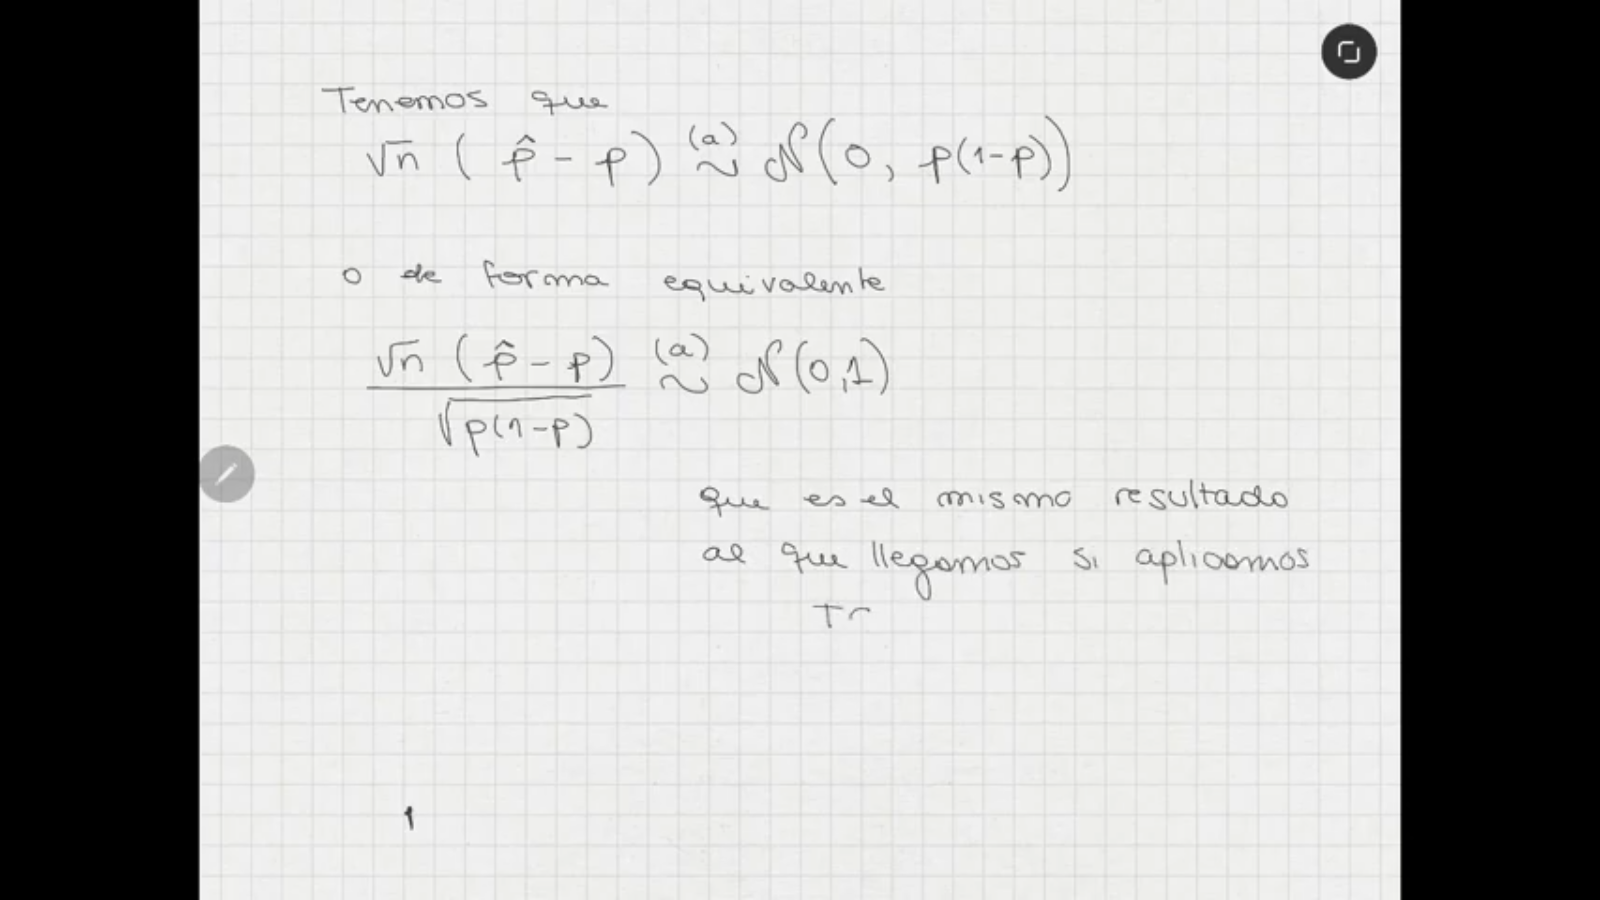 Tenemos que
√n ( p̂ - p ) (a) ~ N(0, p(1-p))
o de forma equivalente
√n ( p̂ - p ) / √p(1-p) (a) ~ N(0,1)
que es el mismo resultado
al que llegamos si aplicamos
TC
1